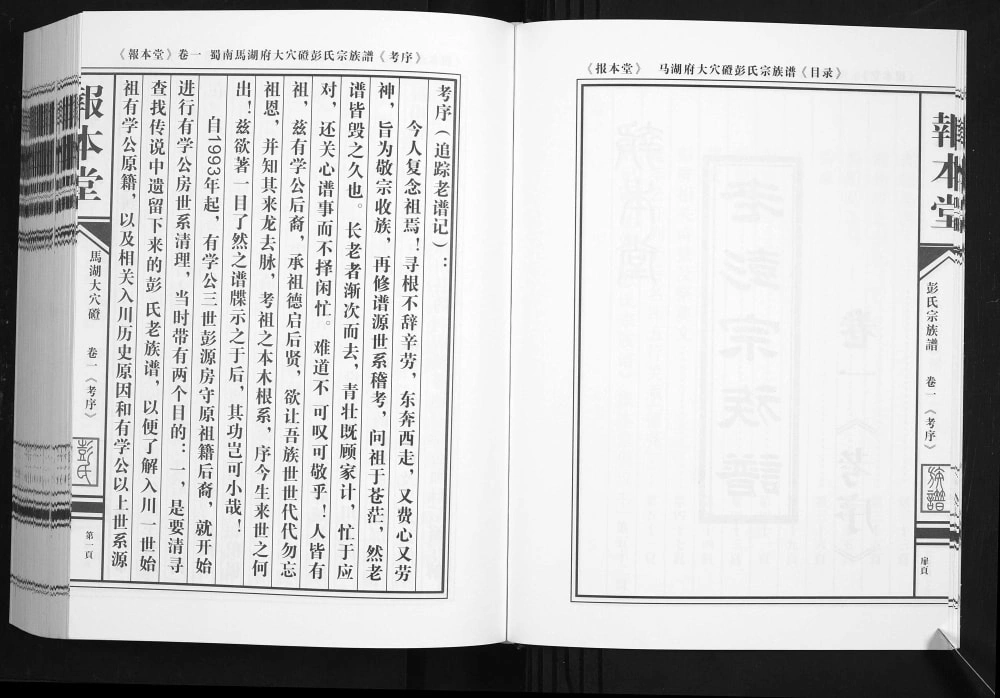 《报本堂》 马湖府大穴磴彭氏宗族谱《目录》
報本堂
彭氏宗族譜
卷一《考序》
族譜
扉頁
《報本堂》卷一 蜀南馬湖府大穴磴彭氏宗族譜《考序》
考序（追踪老谱记）：
今人复念祖焉！寻根不辞辛劳，东奔西走，又费心又劳
神，旨为敬宗收族，再修谱源世系稽考，问祖于苍茫，然老
谱皆毁之久也。长老者渐次而去，青壮既顾家计，忙于应
对，还关心谱事而不择闲忙。难道不可叹可敬乎！人皆有
祖，兹有学公后裔，承祖德启后贤，欲让吾族世世代代勿忘
祖恩，并知其来龙去脉，考祖之本木根系，序今生来世之何
出！兹欲著一目了然之谱牒示之于后，其功岂可小哉！
自1993年起，有学公三世彭源房守原祖籍后裔，就开始
进行有学公房世系清理，当时带有两个目的：一，是要清寻
查找传说中遗留下来的彭 氏老族谱，以便了解入川一世始
祖有学公原籍，以及相关入川历史原因和有学公以上世系源
報本堂
馬湖大穴磴
卷一《考序》
彭氏
第一頁